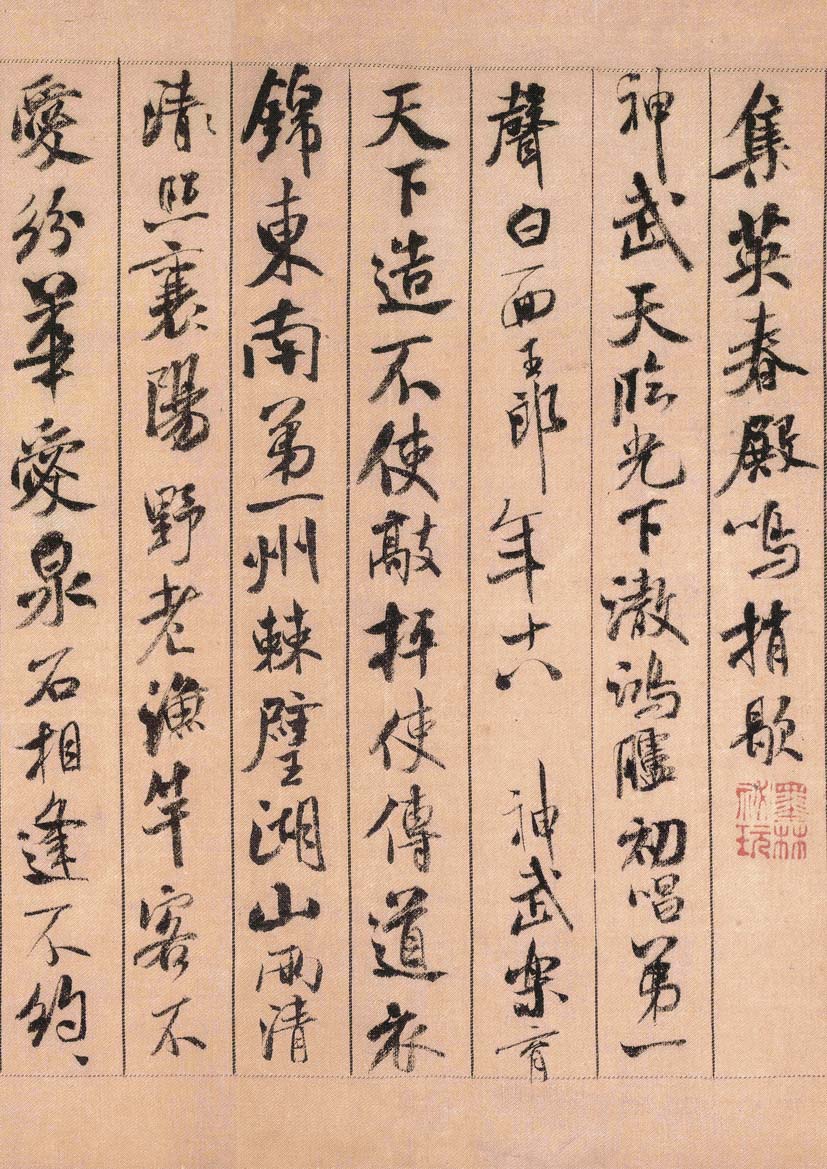 集英春殿鳴捎歇
神武天臨光下澈鴻臚初唱第一
聲白面王郎年十八 神武樂育
天下造不使敲抨使傳道衣
錦東南第一州棘璧湖山兩清
清照襄陽野老漁竿客不
愛紛華愛泉石相逢不約、
墨林秘玩